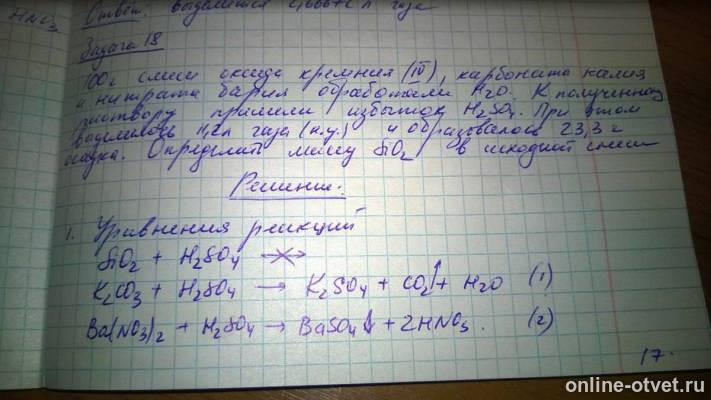 HNO3
Ответ: выделяется газа
Задача 18
100г смеси оксида кремния (IV), карбоната калия
и нитрата бария обработали H2O. К полученному
раствору прилили избыток H2SO4. При этом
выделилось 11,2л газа (н.у.) и образовалось 23,3 г
осадка. Определить массу SiO2 в исходной смеси
Решение:
1. Уравнения реакций
SiO2 + H2SO4 ↛
K2CO3 + H2SO4 → K2SO4 + CO2↑ + H2O (1)
Ba(NO3)2 + H2SO4 → BaSO4↓ + 2HNO3. (2)
17.
online-otvet.ru